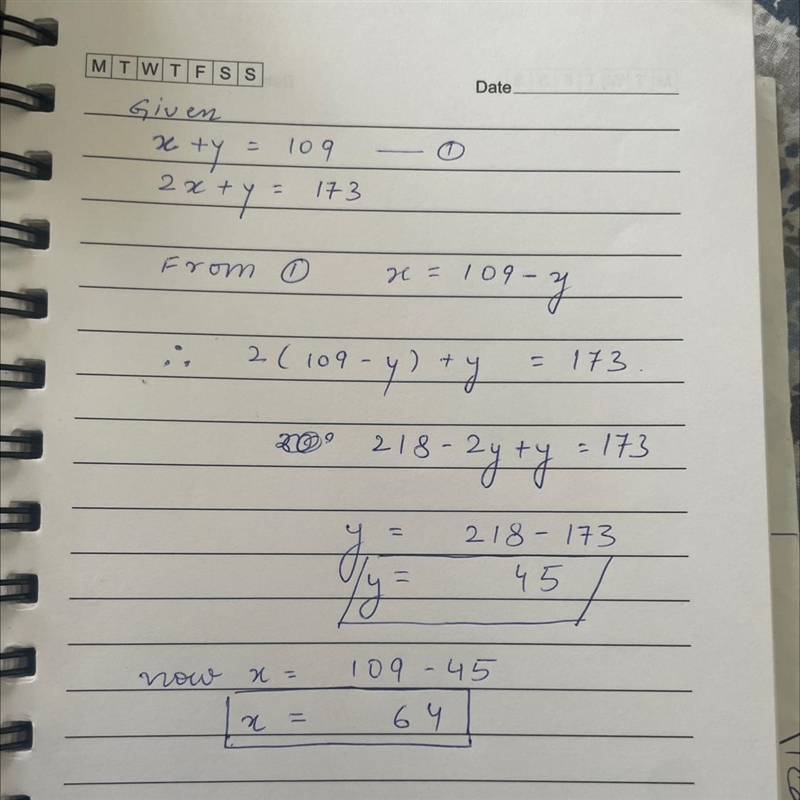 M T W T F S S
Date
Given
x + y = 109 — ①
2x + y = 173
From ① x = 109 - y
∴ 2(109 - y) + y = 173.
218 - 2y + y = 173
y = 218 - 173
y = 45
now x = 109 - 45
x = 64